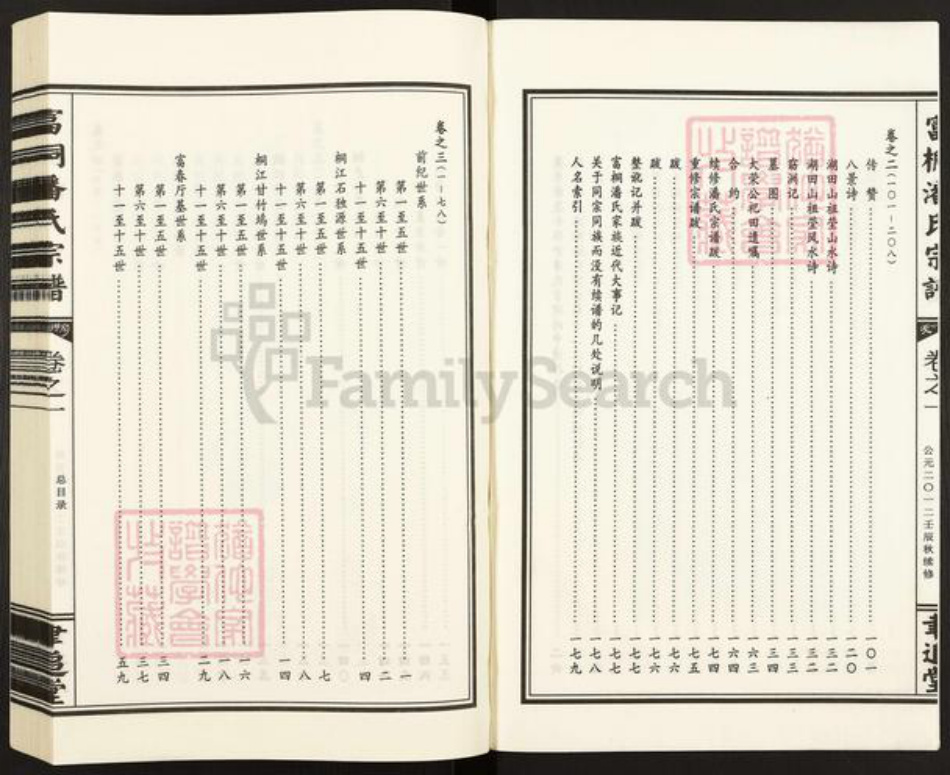 富桐潘氏宗谱
卷之一
公元二〇一二壬辰秋续修
聿追堂
卷之二(一〇一－二〇八)
传赞 一〇一
八景诗 一二〇
湖田山祖莹山水诗 一三二
湖田山祖莹风水诗 一三二
窈洲记 一三三
墓图 一三四
大荣公祀田遗嘱 一六三
合约 一六四
续修潘氏宗谱跋 一七四
重修宗谱跋 一七五
跋 一七六
跋 一七六
整说记并跋 一七七
富桐潘氏家族近代大事记 一七七
关于同宗同族而没有续谱的几处说明 一七八
人名索引 一七九
卷之三(一－七八)
前纪世系
第一至五世 一
第六至十世 二
十一至十五世 四
桐江石独源世系
第一至五世 七
第六至十世 八
十一至十五世 一四
桐江甘竹坞世系
第一至五世 一六
第六至十世 一八
十一至十五世 二九
富春厅基世系
第一至五世 三四
第六至十世 三七
十一至十五世 五九
富桐潘氏宗谱
卷之一
总目录
聿追堂
FamilySearch